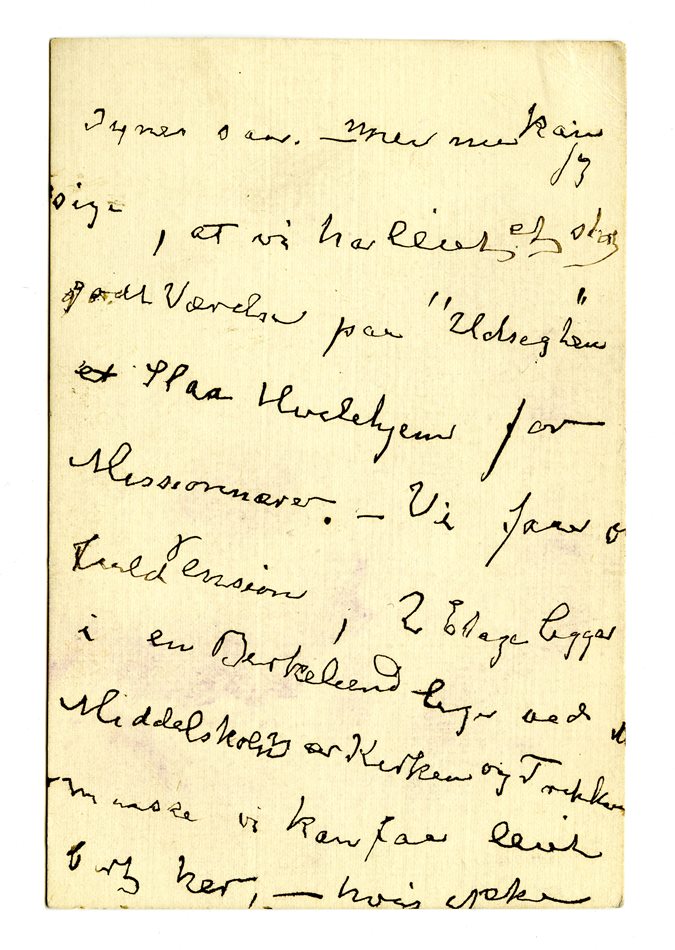 synes saa. – Men nu kan
jeg
sige, at vi har leiet et stort
godt Værelse paa "Udsigten"
et slags Hvilehjem for
Missionærer. – Vi faar
fuld Pension, 2 Etage ligger
i en Birkelund lige ved
Middelskolen Kirken og Trikken
maaske vi kan faa leiet
bort her, – hvis ikke